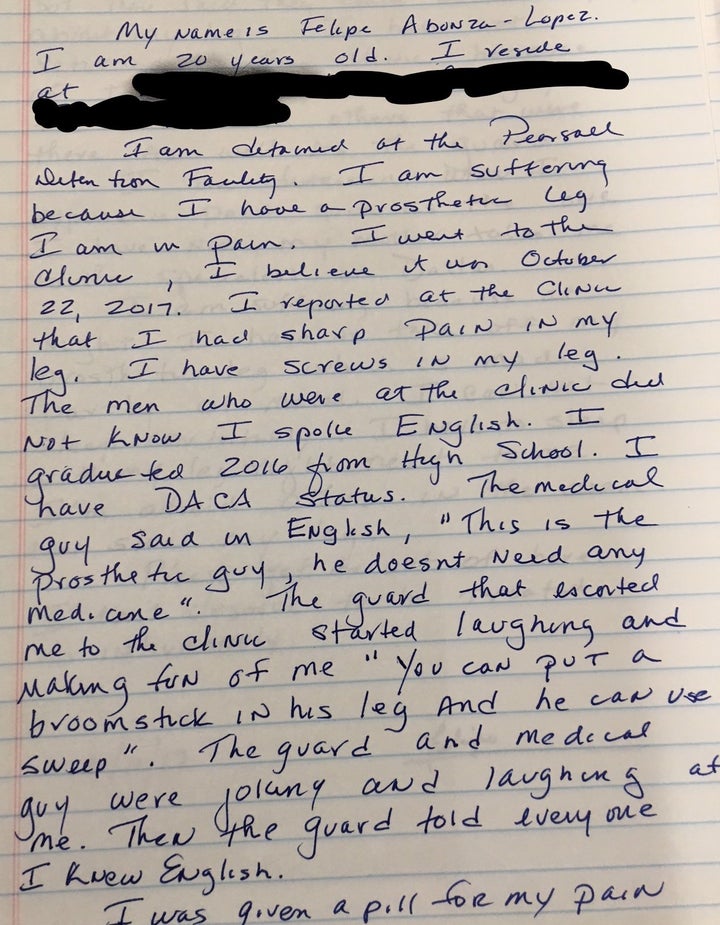 My name is Felipe Abonza-Lopez.
I am 20 years old. I reside
at
I am detained at the Pearsall
Detention Facility. I am suffering
because I have a prosthetic leg
I am in pain. I went to the
clinic, I believe it was October
22, 2017. I reported at the clinic
that I had sharp pain in my
leg. I have screws in my leg.
The men who were at the clinic did
not know I spoke English. I
graduated 2016 from High School. I
have DACA status. The medical
guy said in English, "This is the
prosthetic guy, he doesnt need any
medicine". The guard that escorted
me to the clinic started laughing and
making fun of me "You can put a
broomstick in his leg and he can use
sweep". The guard and medical
guy were joking and laughing at
me. Then the guard told everyone
I knew English.
I was given a pill for my pain